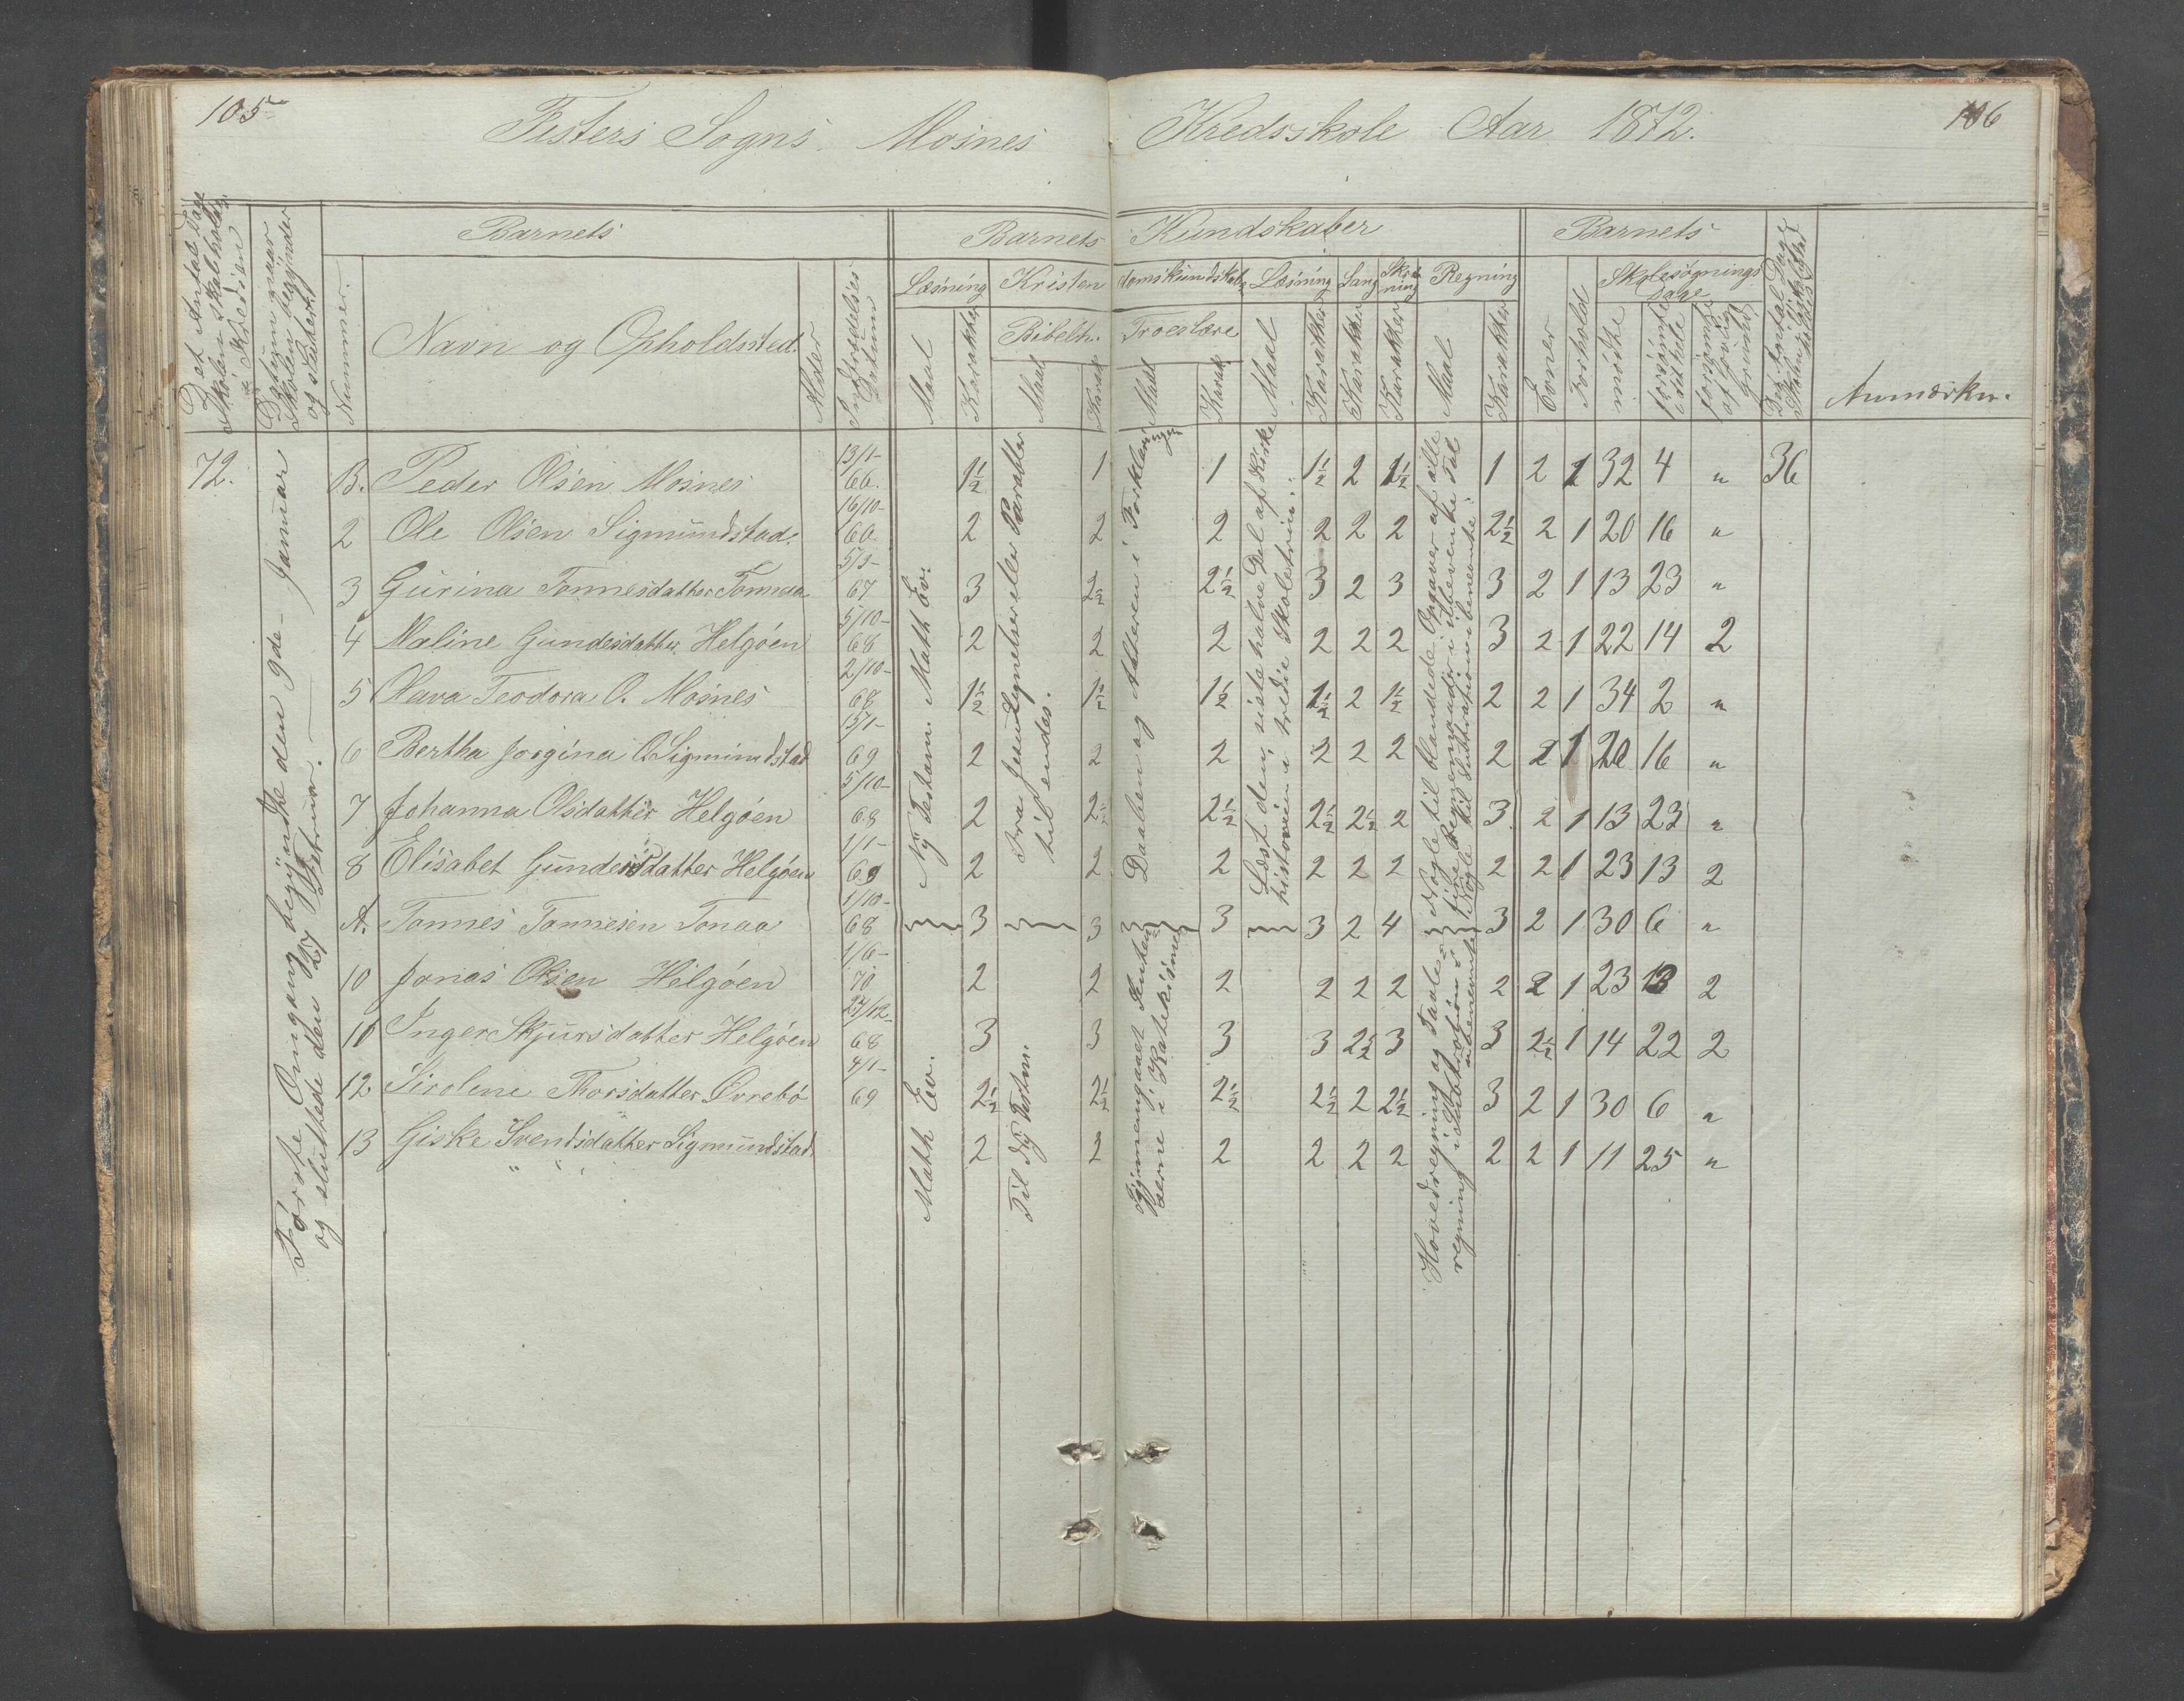 105
106
Fisters Sogns Mosnes Kredsskole Aar 1872.
Det Antal Dage Skolen skal holdes i Kredsen
Datum naar Skolen begynder og slutter
Barnets
Nummer.
Navn og Opholdssted.
Alder
Indtrædelses Datum
Barnets Kundskaber
Læsning
Maal
Karakter
Kristendomskundskab
Bibelh.
Maal
Karak
Troeslære
Maal
Karak
Læsning
Maal
Karakter
Sang
Karakter
Skrivning
Karakter
Regning
Maal
Karakter
Barnets
Evner
Forhold
Skolesøgnings Dage
mødte
forsømte i det hele
forsømte af lovlig Grund
Det Antal Dage Skolen i Virkeligheden er holdt
Anmærkn.
72.
Første Omgang begyndte den 9de Januar
og sluttede den 27 Februar.
B. Peder Olsen Mosnes 13/1- 66. 1½ 1 1 1½ 2 1½ 1 2 1 32 4 " 36
2 Ole Olsen Sigmundstad. 16/10- 60. 2 2 2 2 2 2 2½ 2 1 20 16 "
3 Gurina Tønnesdatter Tonnaa 5/3- 67 3 2½ 2½ 3 2 3 3 2 1 13 23 "
4 Maline Gundesdatter Helgøen 5/10- 68 2 2 2 2 2 2 3 2 1 22 14 2
5 Olava Teodora O. Mosnes 2/10- 68 1½ 1½ 1½ 1½ 2 1½ 2 2 1 34 2 "
6 Bertha Jorgina O. Sigmundstad 13/1- 69 2 2 2 2 2 2 2 2 1 20 16 "
7 Johanna Olsdatter Helgøen 5/10- 68 2 2½ 2½ 2½ 2½ 2 3 2 1 13 23 "
8 Elisabet Gundersdatter Helgøen 1/1- 69 2 2 2 2 2 2 2 2 1 23 13 2
A. Tønnes Tønnesen Tonaa 1/10- 68 3 3 3 3 2 4 3 2 1 30 6 "
10 Jonas Olsen Helgøen 1/6- 70 2 2 2 2 2 2 2 2 1 23 13 2
11 Inger Skjursdatter Helgøen 27/12- 68 3 3 3 3 2½ 3 3 2½ 1 14 22 2
12 Sirolene Thorsdatter Øvrebø 4/1- 69 2½ 2½ 2½ 2½ 2 2½ 3 2 1 30 6 "
13 Giske Svendsdatter Sigmundstad " " 2 2 2 2 2 2 2 2 1 11 25 "
Ny Testam. Math Ev.
Math Ev.
Fra Jesu Lignelser eller Parabler
til endes.
Til Ny Testm.
Daaben og Alteren i Forklaringen
Gjennemgaaet
serne i Katekismen
Læst den siste halve Del af Kirke
historien i tredie Skoletrin.
Nogle til blandede Opgaver af alle
fire Regningsarter i ubenevnte Tal
Nogle til Subtraktion i benevnte.
Hovedregning og Tavle
regning i Subtraktion i
ubenevnte